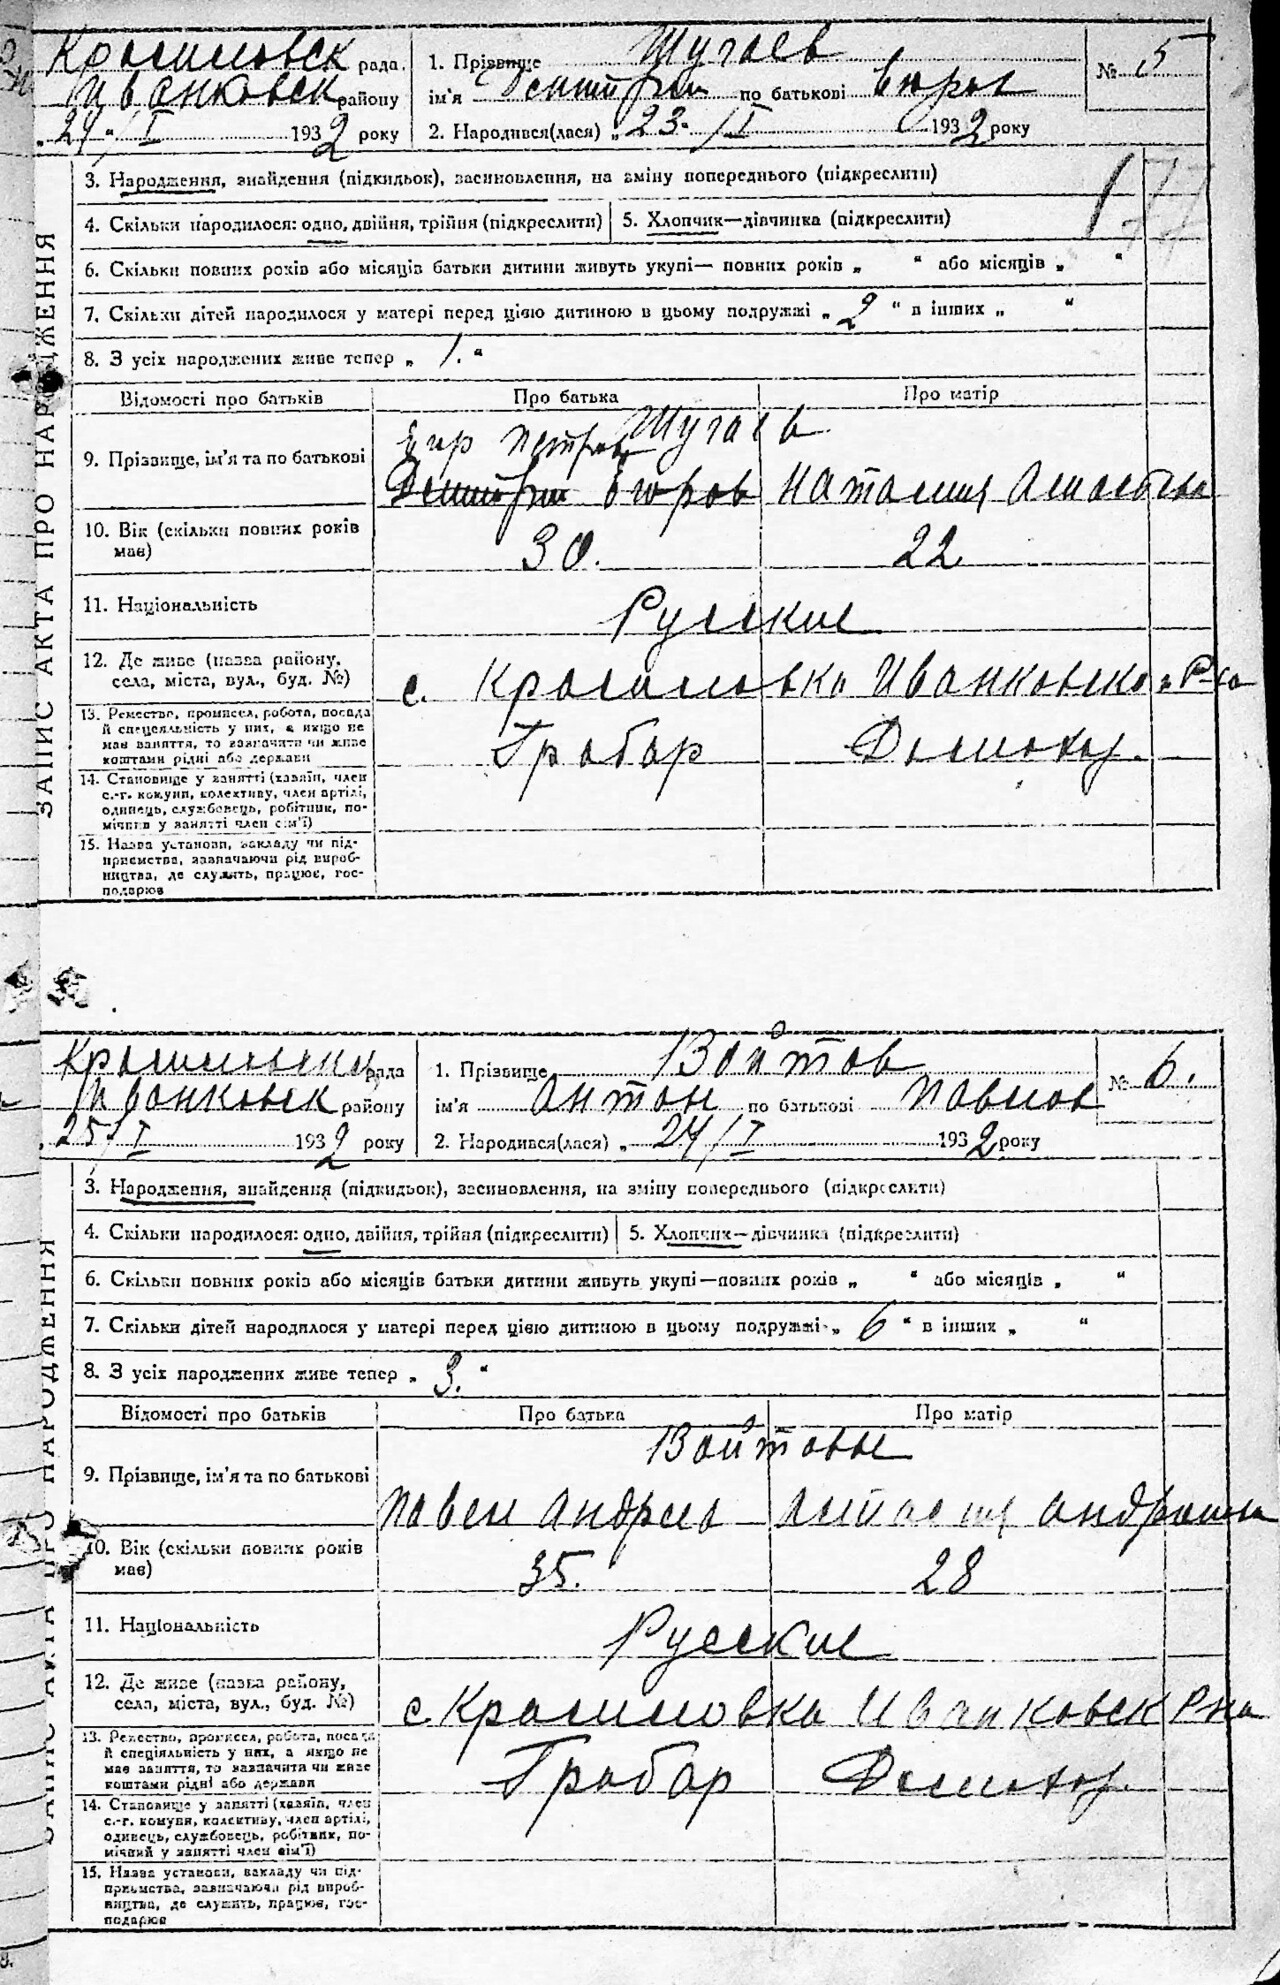 Красиловск рада
Иванковск району
24/I 1932 року
1. Прізвище Шугаев
ім'я Дмитрий по батькові Егоров
2. Народився(лася) „ 23/I 1932 року
№ 5
ЗАПИС АКТА ПРО НАРОДЖЕННЯ
3. Народження, знайдення (підкидьок), засиновлення, на зміну попереднього (підкреслити)
4. Скільки народилося: одно, двійня, трійня (підкреслити)
5. Хлопчик—дівчинка (підкреслити)
6. Скільки повних років або місяців батьки дитини живуть укупі— повних років „ “ або місяців „ “
7. Скільки дітей народилося у матері перед цією дитиною в цьому подружжі „ 2 “ в інших „ “
8. З усіх народжених живе тепер „ 1. “
Відомості про батьків Про батька Про матір
9. Прізвище, ім'я та по батькові
Шугаев
Егор Петров
Дмитрий Егоров Наталия
10. Вік (скільки повних років має) 30. 22
11. Національність Русские
12. Де живе (назва району, села, міста, вул., буд. №) с. Красиловка Иванковско Р-на
13. Ремество, промисел, робота, посада й спеціяльність у них, а якщо не має заняття, то зазначити чи живе коштами рідні або держави
Грабар Домохоз.
14. Становище у занятті (хазяїн, член с.-г. комуни, колективу, член артілі, одинець, службовець, робітник, помічний у занятті член сім'ї)
15. Назва установи, закладу чи підприємства, зазначаючи рід виробництва, де служить, працює, господарює
Красиловск рада
Иванковск району
25/I 1932 року
1. Прізвище Войтов
ім'я Антон по батькові Павлов
2. Народився(лася) „ 24/I 1932 року
№ 6.
ЗАПИС АКТА ПРО НАРОДЖЕННЯ
3. Народження, знайдення (підкидьок), засиновлення, на зміну попереднього (підкреслити)
4. Скільки народилося: одно, двійня, трійня (підкреслити)
5. Хлопчик—дівчинка (підкреслити)
6. Скільки повних років або місяців батьки дитини живуть укупі—повних років „ “ або місяців „ “
7. Скільки дітей народилося у матері перед цією дитиною в цьому подружжі „ 6 “ в інших „ “
8. З усіх народжених живе тепер „ 3. “
Відомості про батьків Про батька Про матір
9. Прізвище, ім'я та по батькові
Войтовы
Павел Андреев
10. Вік (скільки повних років має) 35. 28
11. Національність Русские
12. Де живе (назва району, села, міста, вул., буд. №) с. Красиловка Иванковск Р-на
13. Ремество, промисел, робота, посада й спеціяльність у них, а якщо не має заняття, то зазначити чи живе коштами рідні або держави
Грабар Домохоз.
14. Становище у занятті (хазяїн, член с.-г. комуни, колективу, член артілі, одинець, службовець, робітник, помічний у занятті член сім'ї)
15. Назва установи, закладу чи підприємства, зазначаючи рід виробництва, де служить, працює, господарює